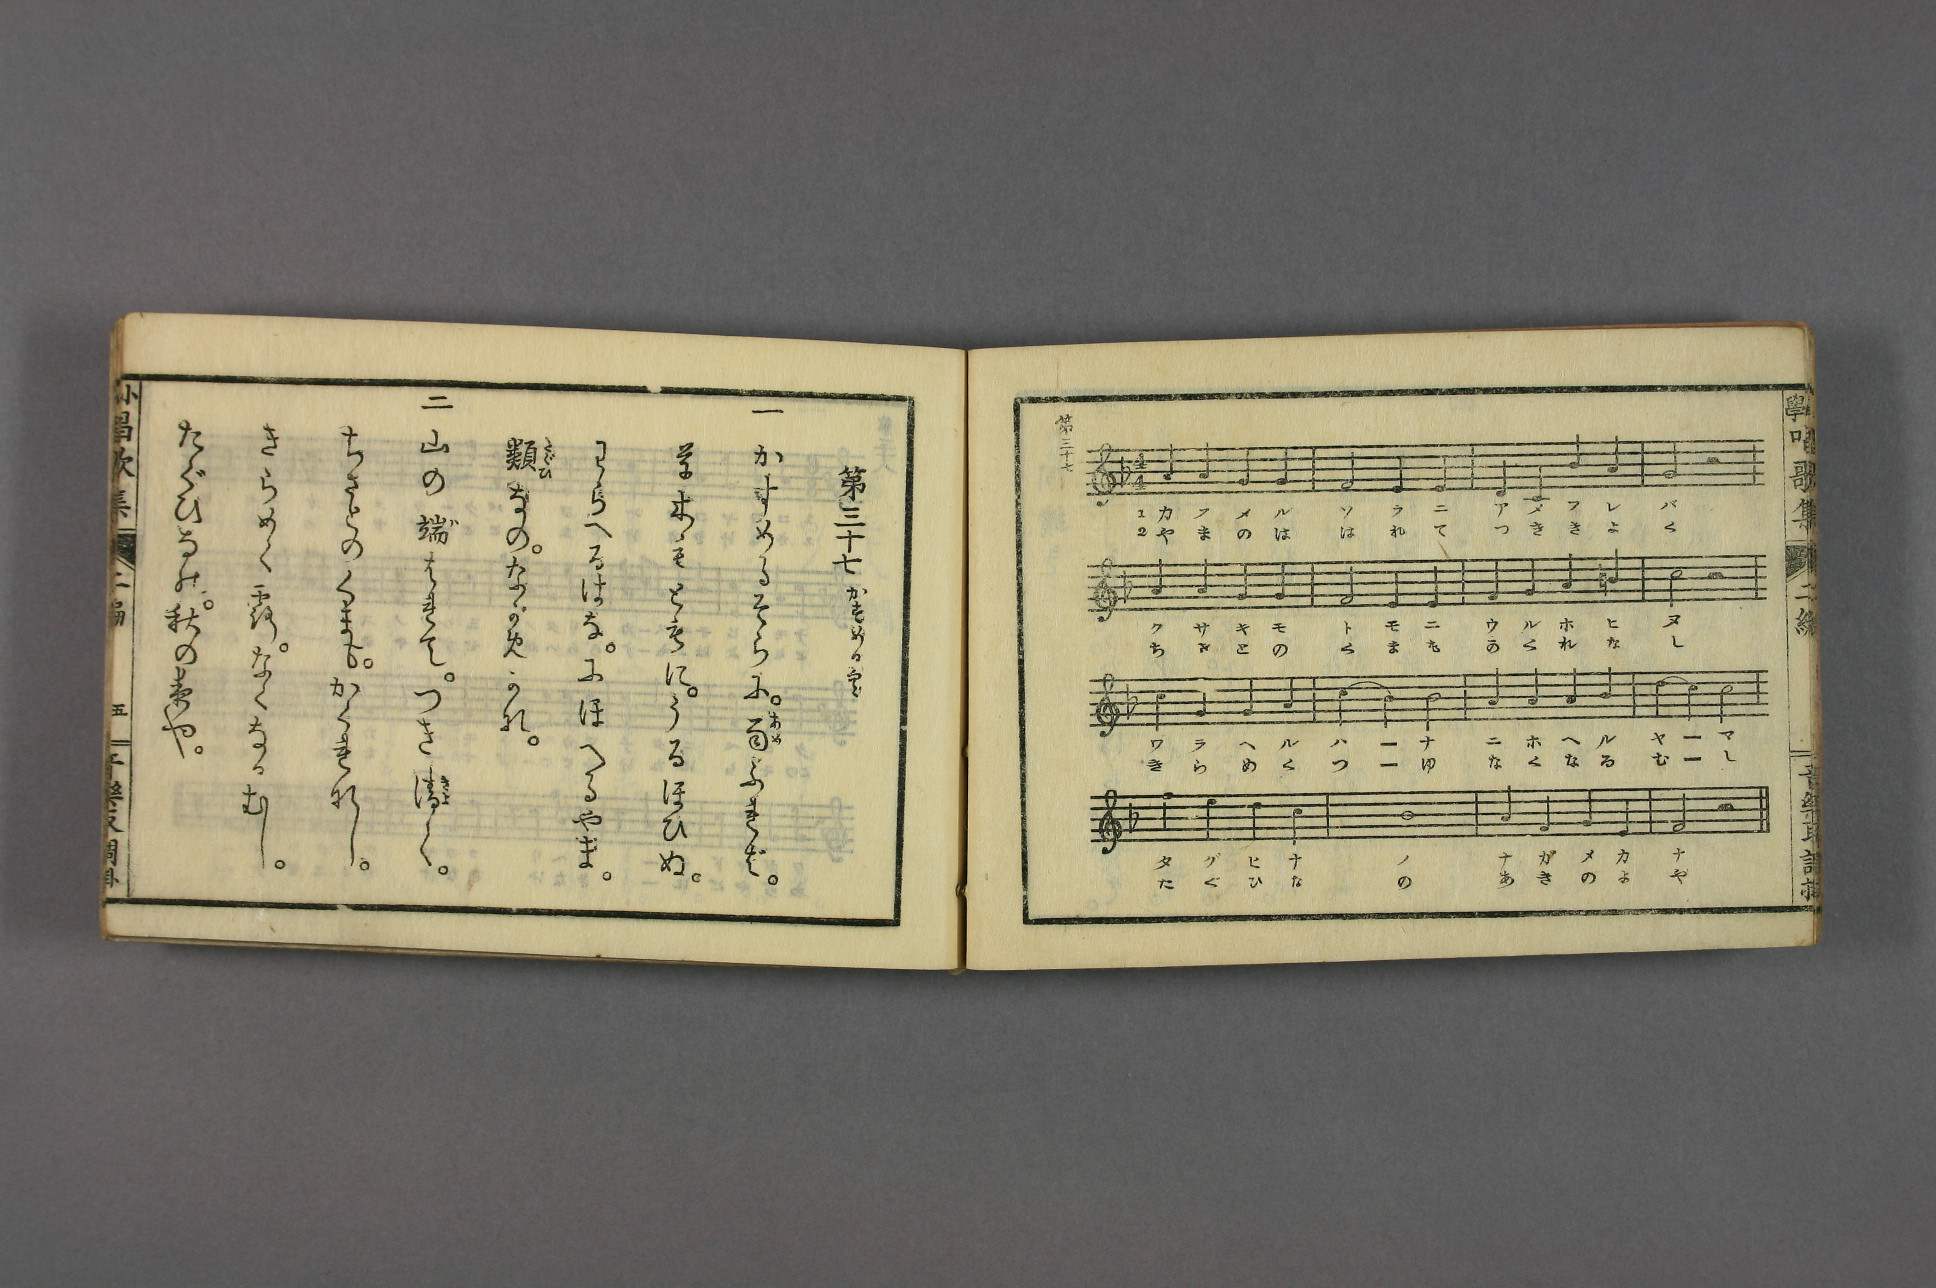 小學唱歌集 二編 音樂取調掛
第三十七
1 カスメル ソラニ アメフレ バ
2 やまのは はれて つききよ く
クサキモ トモニ ウルホヒ ヌ
ちさとの くまも かくれな し
ワラヘル ハーナ ニホヘル ヤーマ
きらめく つーゆ なくなる むーし
タグヒナ ノ ナガメカ ナ
たぐひな の あきのよ や
第三十七 かすめる空
一 かすめるそらに。雨ふれば。
草木もともに。うるほひぬ。
わらへるはな。にほへるやま。
類なの。ながめかな。
二 山の端はれて。つき清く。
ちさとのくまも。かくれなし。
きらめく露。なくなるむし。
たぐひなの。秋の夜や。
小學唱歌集 二編 五 音樂取調掛